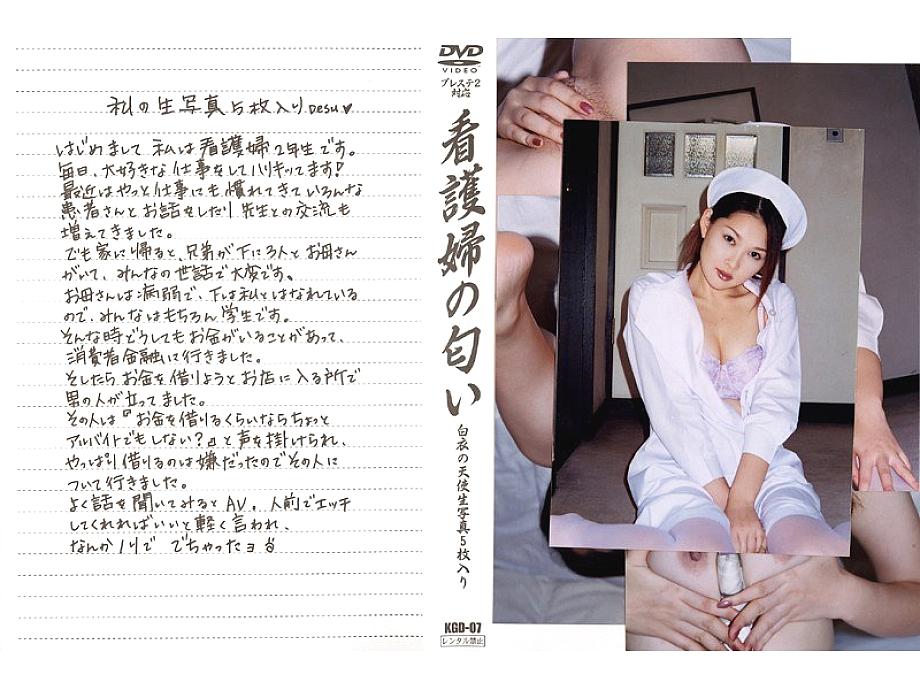 私の生写真5枚入りDESU♥
はじめまして 私は看護婦2年生です。
毎日、大好きな仕事をしてハリキッてます!
最近はやっと仕事にも慣れてきていろんな
患者さんとお話をしたり先生との交流も
増えてきました。
でも家に帰ると、兄弟が下に3人とお母さん
がいて、みんなの世話で大変です。
お母さんは病弱で、下は私とはなれている
ので、みんなはもちろん学生です。
そんな時どうしてもお金がいることがあって、
消費者金融に行きました。
そしたらお金を借りようとお店に入る所で
男の人が立ってました。
その人は『お金を借りるくらいならちょっと
アルバイトでもしない?』と声を掛けられ、
やっぱり借りるのは嫌だったのでその人に
ついて行きました。
よく話を聞いてみるとAV。人前でエッチ
してくれればいいと軽く言われ、
なんかノリで でちゃったョ
DVD
VIDEO
プレステ2
対応
看護婦の匂い
白衣の天使生写真5枚入り
KGD-07
レンタル禁止